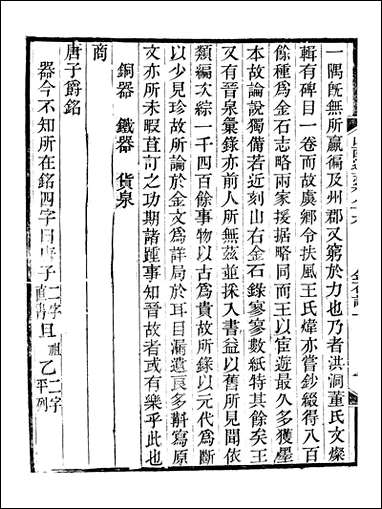 一隅旣無所贏徧及州郡又窮於力也乃者洪洞董氏文燦
輯有碑目一卷而故虞鄉令扶風王氏煒亦嘗鈔綴得八百
餘種爲金石志略兩家援據略同而王以宦遊最久多獲墨
本故論說獨備若近刻山右金石錄寥寥數紙特其餘矣王
又有晉泉彙錄亦前人所無茲並採入書益以舊所見聞依
類編次綜一千四百餘事物以古爲貴故所錄以元代爲斷
以少見珍故所論於金文爲詳局於耳目漏遺良多斠寫原
文亦所未暇葺訂之功期諸踵事知晉故者或有樂乎此也
銅器 鐵器 貨泉
商
唐子爵銘
器今不知所在銘四字曰唐子二字直書且祖乙二字平列